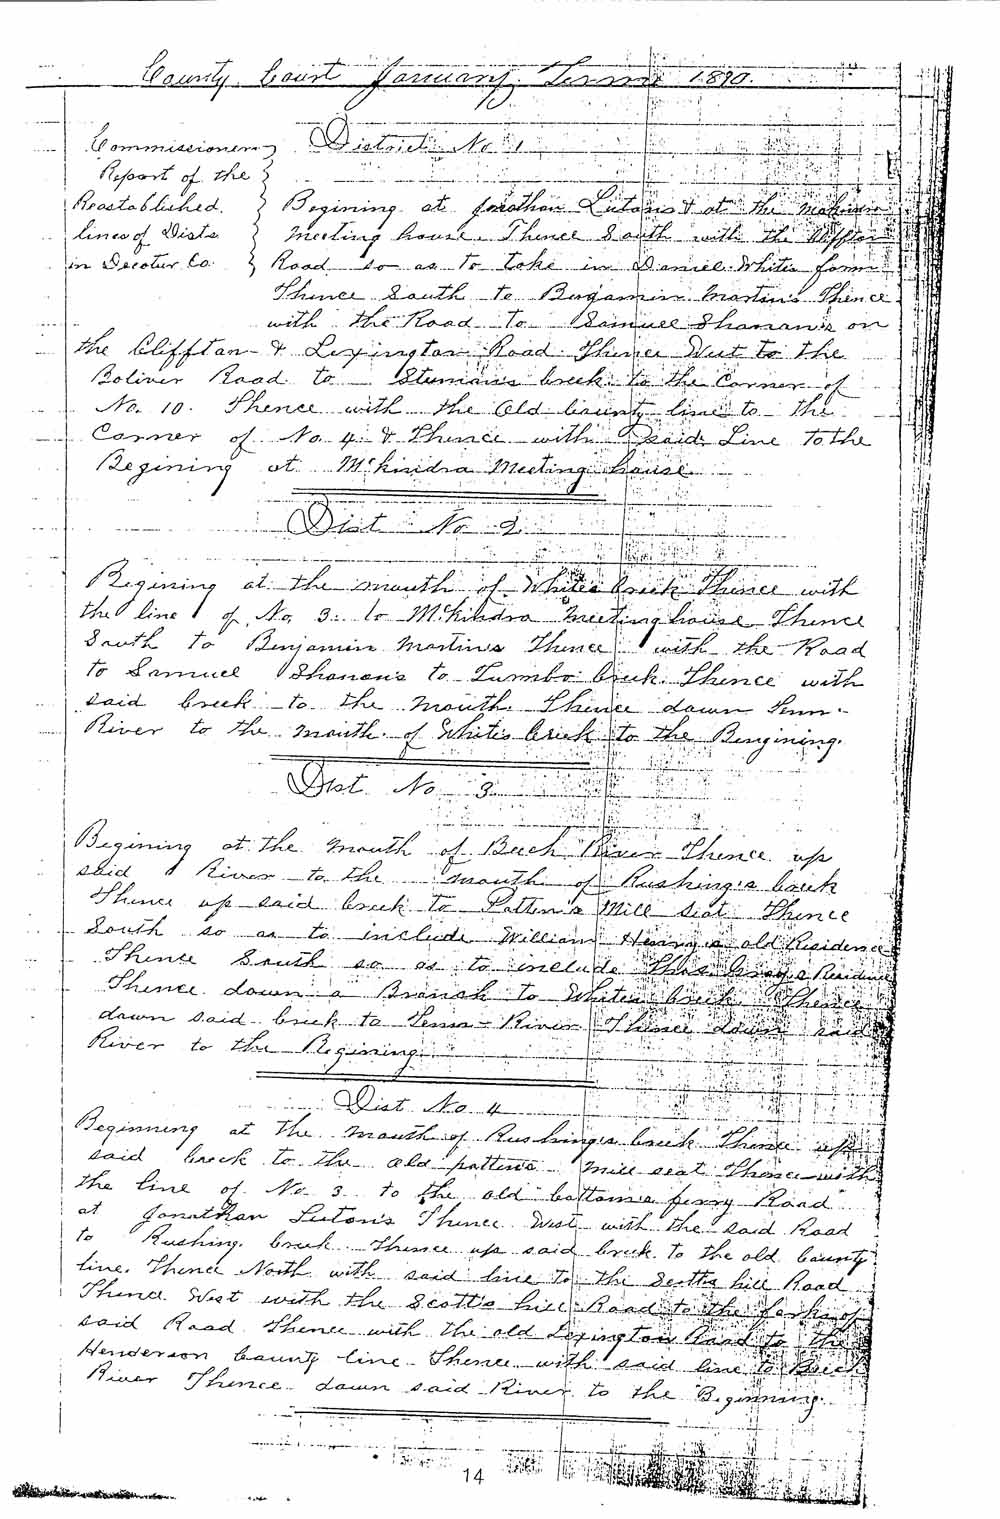 County Court January Term 1890.
Commissioners
Report of the
Reastablished
lines of Dists
in Decatur Co.
District No 1
Begining at Jonathan Lutons & at the
meeting house. Thence South with the Cliffton
Road so as to take in Daniel Whites farm
Thence South to Bengamin Martin's Thence
with the Road to Samuel Shanan's on
the Cliffton & Lexington Road Thence West to the
Boliver Road to creek to the Corner of
No. 10. Thence with the Old County line to the
Corner of No 4 & Thence with said Line to the
Begining at McKindra Meeting house
Dist No 2
Begining at the mouth of Whites Creek Thence with
the line of No 3. to McKindra Meeting house Thence
South to Benjamin Martins Thence with the Road
to Samuel Shanan's to Turnbo Creek. Thence with
said Creek to the mouth. Thence down Tenn-
River to the mouth of White's Creek to the Bengining.
Dist No 3
Begining at the mouth of Beech River Thence up
said River to the mouth of Rushing's Creek
Thence up said Creek to Patten's Mill seat Thence
South so as to include William Henry's old Residence
Thence South so as to include Thos. Gray's Residence
Thence down a Branch to Whites Creek. Thence
down said creek to Tenn- River Thence down said
River to the Begining
Dist No 4
Beginning at the mouth of Rushing's Creek Thence up
said Creek to the old patten's mill seat Thence with
the line of No. 3 to the old bottom's ferry Road
at Jonathan Luton's Thence West with the said Road
to Rushing. Creek Thence up said Creek to the old County
line. Thence North with said line to the Scotts hill Road
Thence West with the Scott's hill Road to the forks of
said Road Thence with the old Lexington Road to the
Henderson County line. Thence with said line to Beech
River Thence down said River to the Beginning.
14